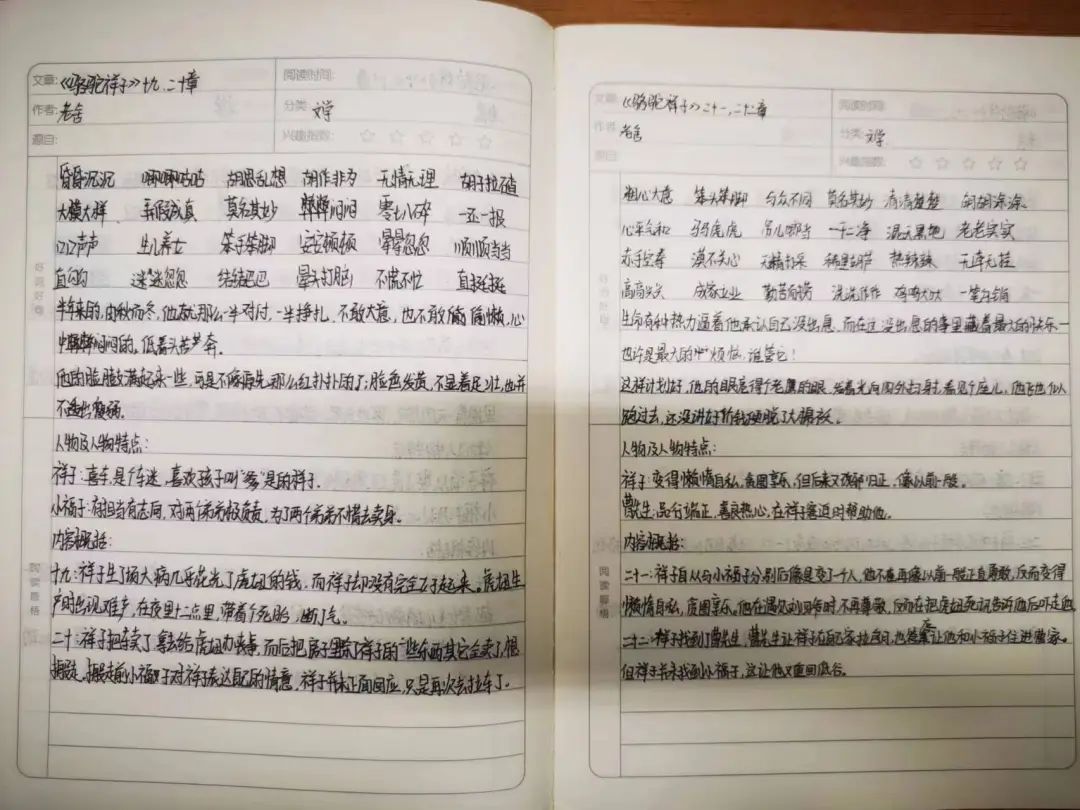 文章:《骆驼祥子》十九、二十章
阅读时间:
作者:老舍
分类:文学
题目:
兴趣指数:☆☆☆☆☆
昏昏沉沉 唧唧咕咕 胡思乱想 胡作非为 无情无理 胡子拉碴
大模大样 弄假成真 莫名其妙 零七八碎 一还一报
口口声声 生儿养女 笨手笨脚 安安顿顿 晕晕忽忽 顺顺当当
直闪闪 迷迷忽忽 结结巴巴 晕头打脑 不慌不忙 直挺挺
半年来的,由秋而冬,他就那么一半对付,一半挣扎,不敢大意,也不敢偷懒,心
中憋憋闷闷的,低着头苦奔。
他的脸脸饱满起来一些,可是不像原先那么红扑扑的了;脸色发黄,不显着足壮,也并
不透出瘦弱。
人物及人物特点:
祥子:喜车,是个车迷,喜欢孩子叫“爹”是的祥子。
小福子:有担当有志向,对两个弟弟极负责,为了两个弟弟不惜去卖身。
内容概括:
十九:祥子生了场大病几乎花光了虎妞的钱,而祥子却没有完全好起来。虎妞生
产时出现难产,在夜里十二点里,带着个死胎,断了气。
二十:祥子把车卖了拿去给虎妞办丧事,而后把房子里除了祥子的一些东西其它全卖了,便
搬走。搬走前小福子对祥子表达自己的情意,祥子并未正面回应,只是再次去拉车了。
好词好句
阅读感悟
文章:《骆驼祥子》二十一、二十二章
阅读时间:
作者:老舍
分类:文学
题目:
兴趣指数:☆☆☆☆☆
粗心大意 笨头笨脚 与众不同 莫名其妙 清清楚楚 胡胡涂涂
心平气和 马马虎虎 吊儿啷当 一干二净 混天黑地 老老实实
赤手空拳 漠不关心 无精打采 稀里胡涂 热辣辣 无牵无挂
高高兴兴 成家立业 勤苦耐劳 洗洗作作 鸡鸡犬犬 一笔勾销
生命有种热力逼着他承认自己没出息,而在这没出息的事里藏着最大的快乐——
也许是最大的烦恼,谁管它!
这样计划好,他的眼亮得个老鹰的眼,发着光向四外扫射,看见个座儿,他飞也似
跑过去,还没讲好价钱便脱了大棉袄。
人物及人物特点:
祥子:变得懒惰自私,贪图享乐,但后来又改邪归正,像以前一般。
曹先生:品行端正,善良热心,在祥子窘迫时帮助他。
内容概括:
二十一:祥子自从与小福子分别后像是变了个人,他不再像以前一般正直勇敢,反而变得
懒惰自私,贪图享乐。他在遇见刘四爷时,不再尊敬,反而在把虎妞死讯告诉他后吓走他
二十二:祥子找到了曹先生,曹先生让祥子在自己家拉包月,也答应让他和小福子住进曹家。
但祥子并未找到小福子,这让他又重回低谷。
阅读感悟